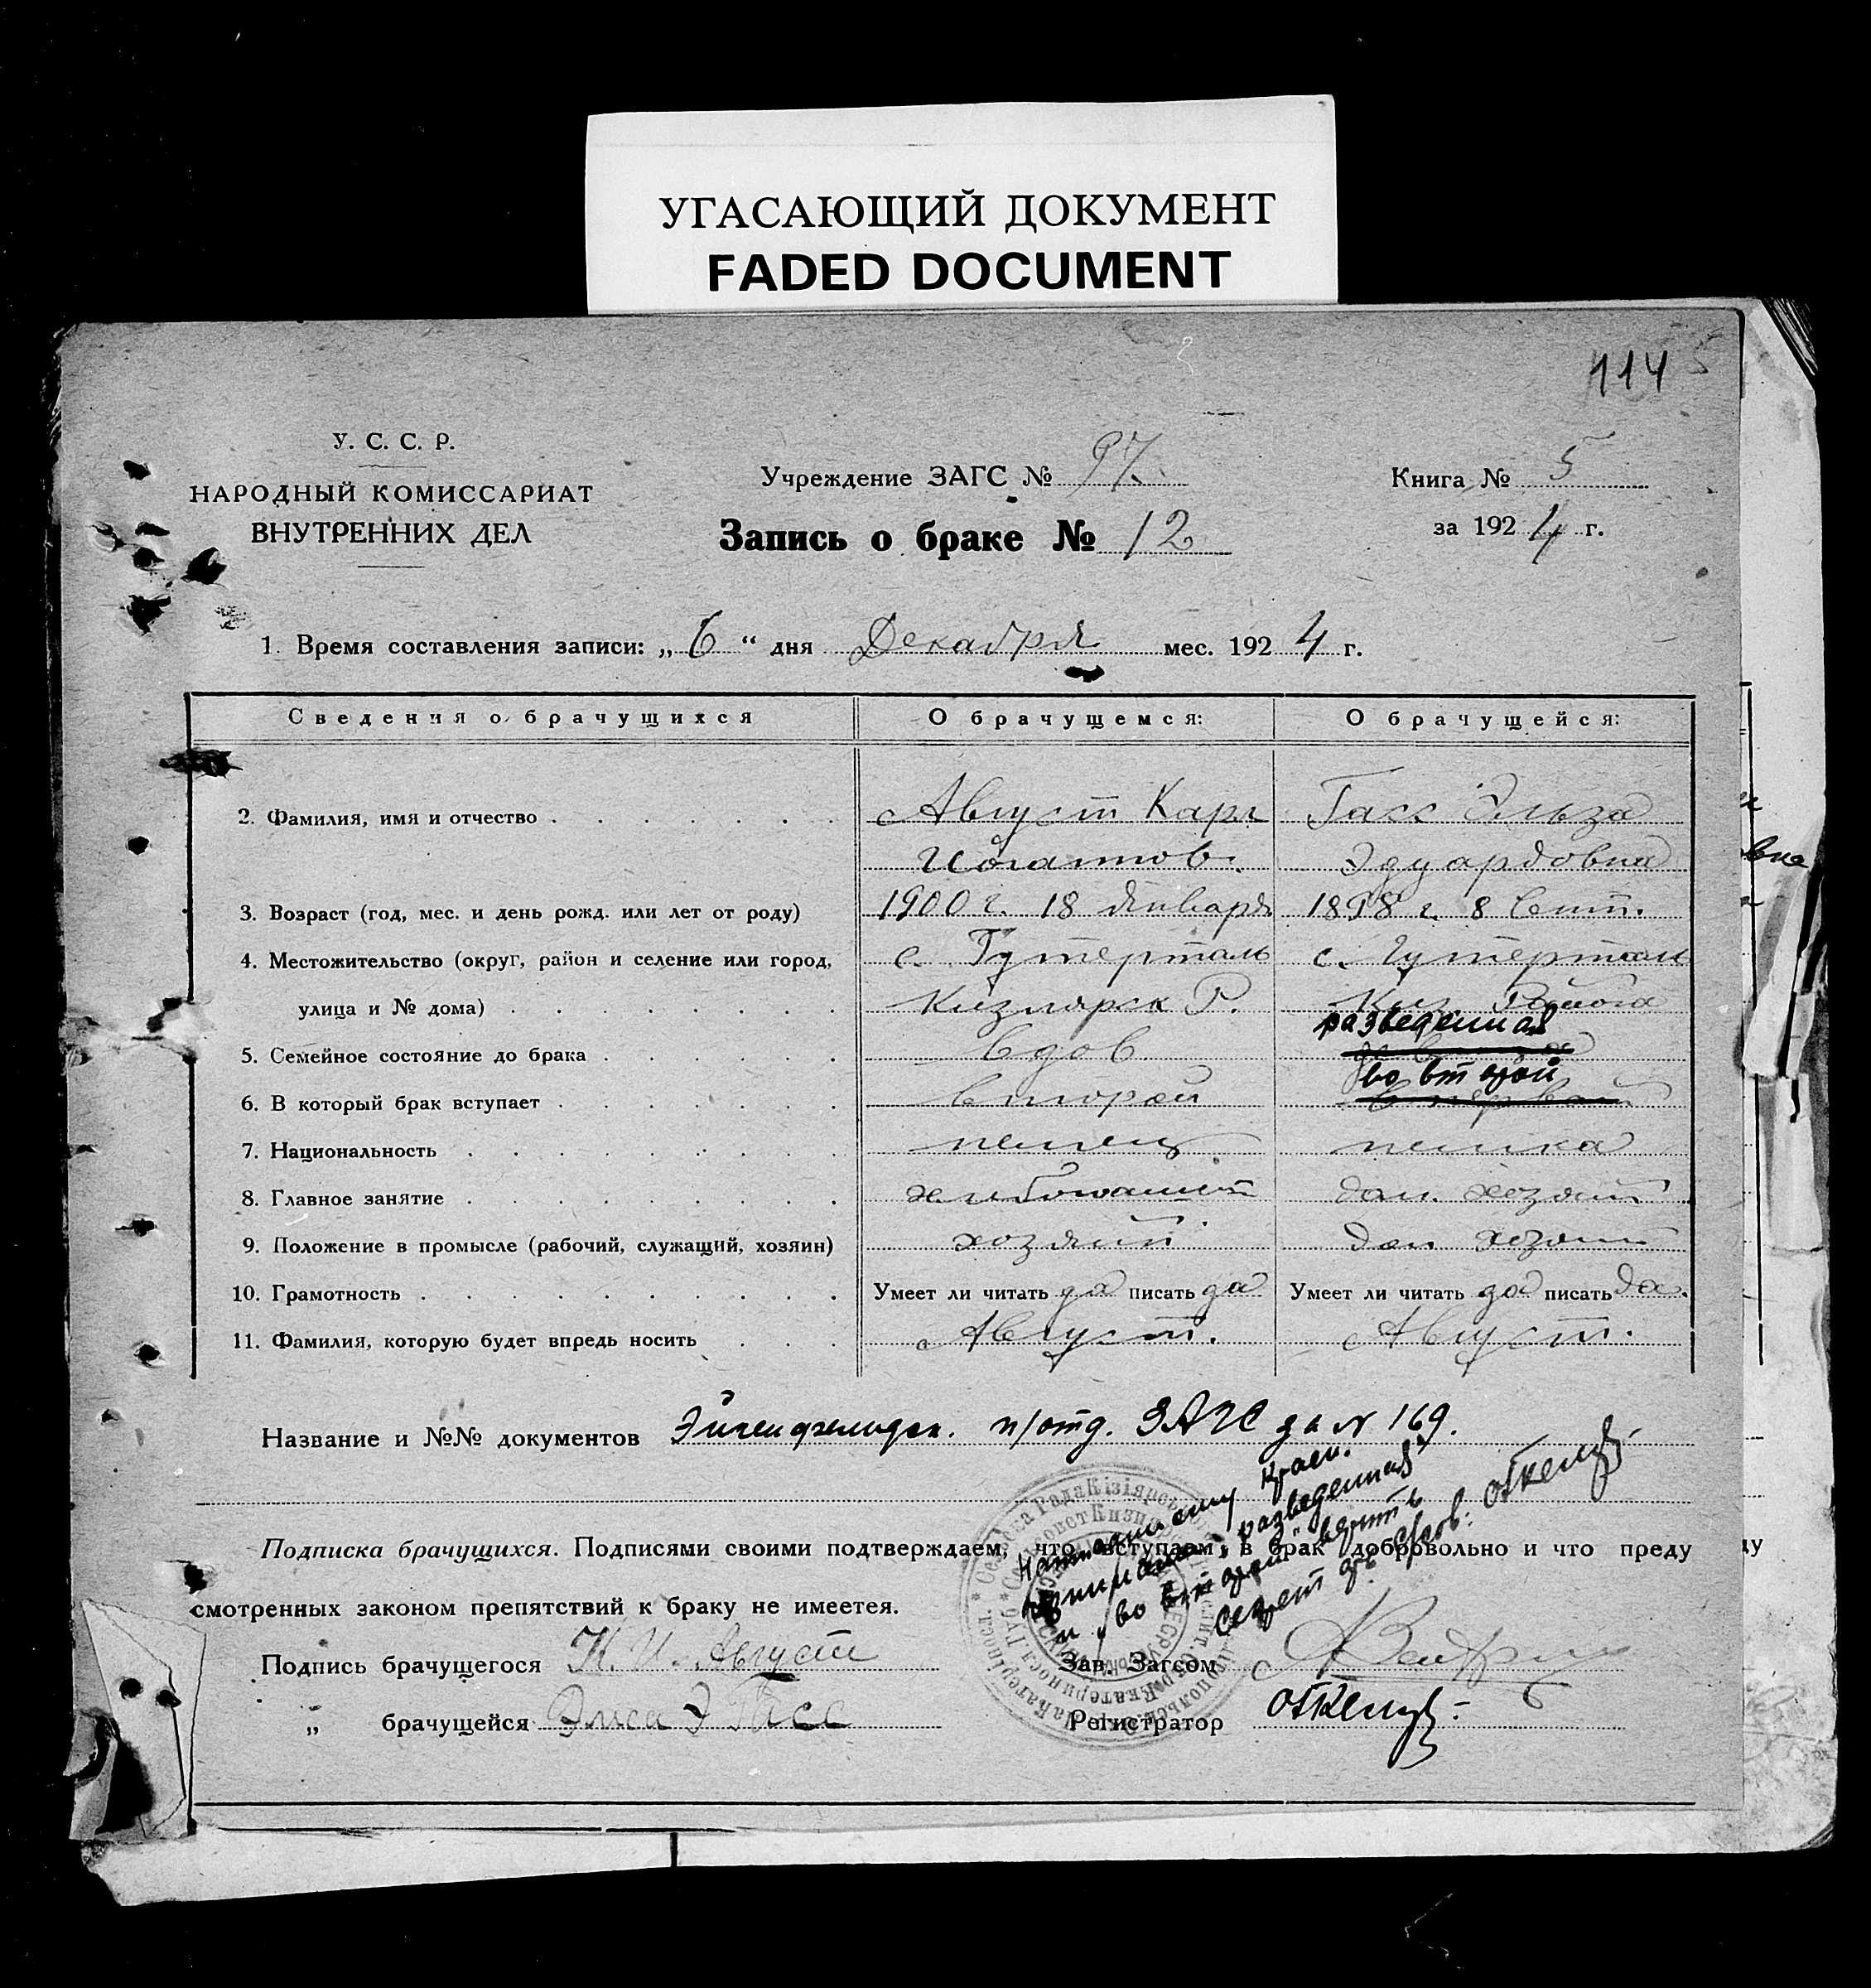 УГАСАЮЩИЙ ДОКУМЕНТ
FADED DOCUMENT
114
У. С. С. Р.
НАРОДНЫЙ КОМИССАРИАТ
ВНУТРЕННИХ ДЕЛ
Учреждение ЗАГС № 97.
Запись о браке № 12
Книга № 5
за 1924 г.
1. Время составления записи: „ 6 “ дня Декабря мес. 1924 г.
Сведения о брачущихся О брачущемся: О брачущейся:
2. Фамилия, имя и отчество Август Карл Гасс Эльза
Эдуардовна
3. Возраст (год, мес. и день рожд. или лет от роду) 1900 г. 18 Января 1898 г. 8 Сент.
4. Местожительство (округ, район и селение или город, с. Гутерталь с. Гутерталь
улица и № дома) Кизиярск Р. Киз. Района
разведенная
5. Семейное состояние до брака вдов
во второй
6. В который брак вступает второй в первый
7. Национальность немец немка
8. Главное занятие дом. хозяй
9. Положение в промысле (рабочий, служащий, хозяин) хозяин дом хозяй
10. Грамотность Умеет ли читать да писать да Умеет ли читать да писать да.
11. Фамилия, которую будет впредь носить Август. Август.
Название и №№ документов Эйгенфельдск. п/отд. ЗАГС за № 169.
разведенная
и во второй верить
Секрет
Подписка брачущихся. Подписями своими подтверждаем, что вступаем в брак добровольно и что преду
смотренных законом препятствий к браку не имеется.
Подпись брачущегося К. И. Август
Зав. Загсом
„ брачущейся Элса Э Гасс
Регистратор